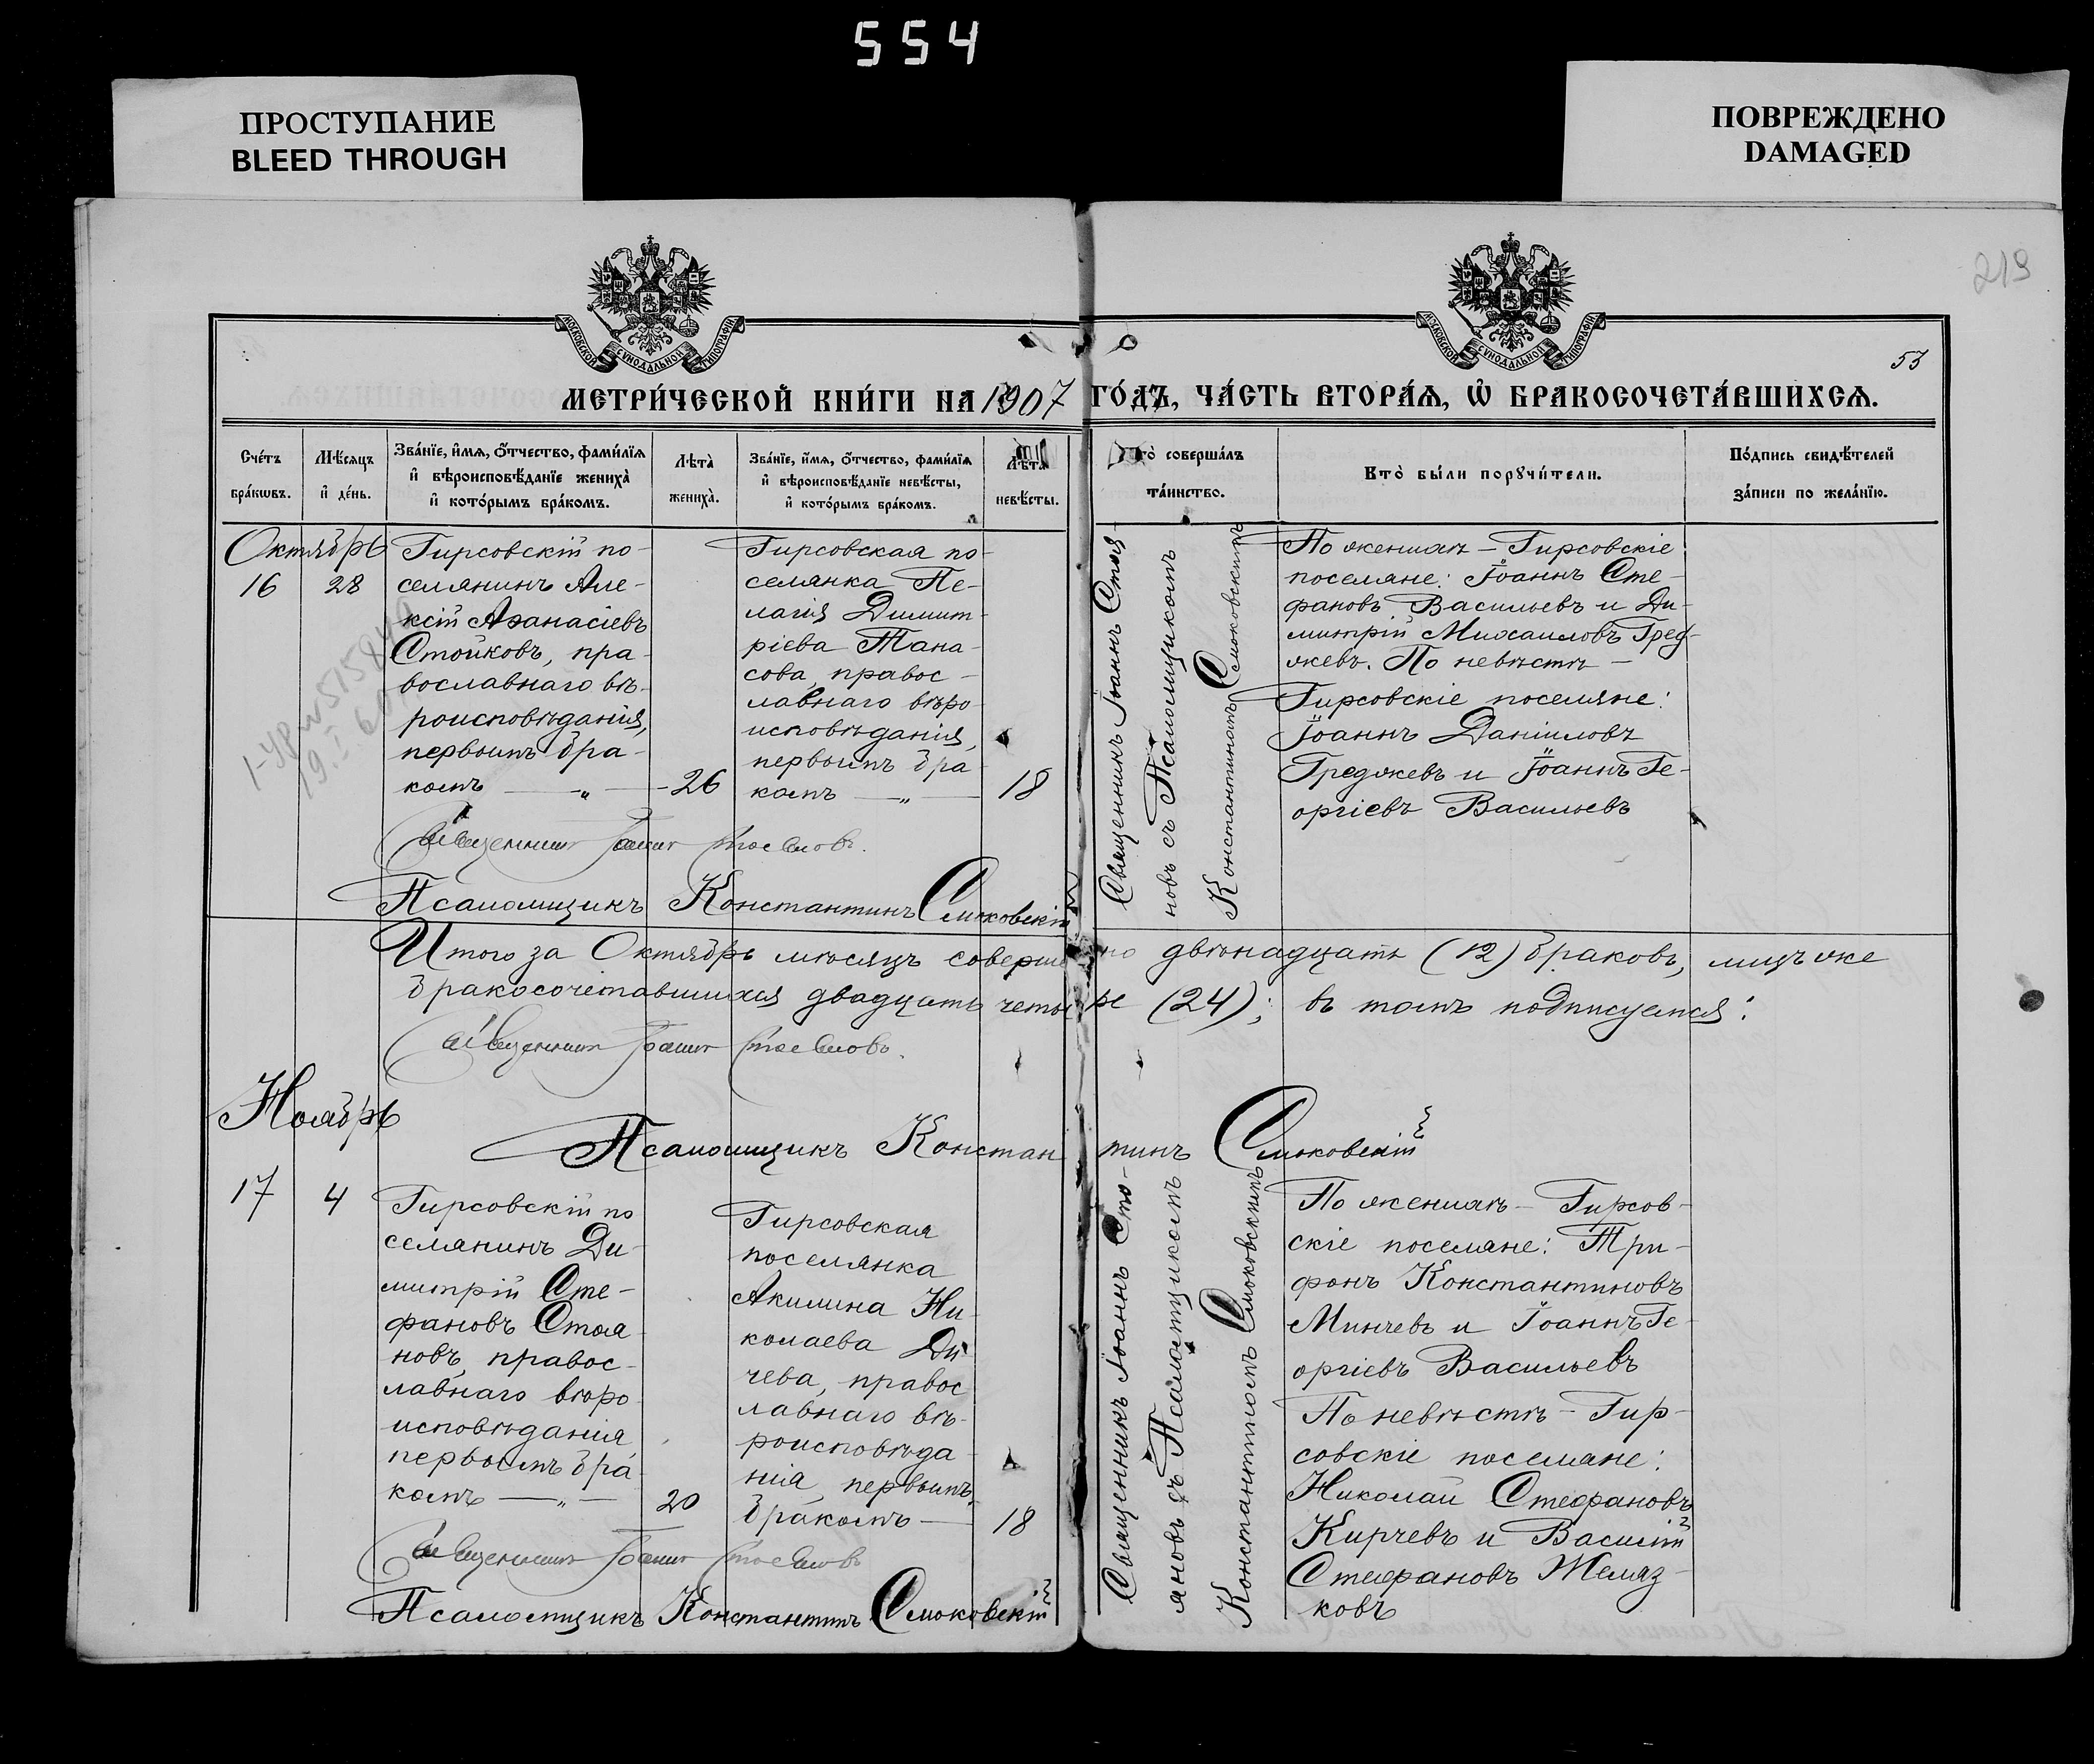 554
ПРОСТУПАНИЕ
BLEED THROUGH
ПОВРЕЖДЕНО
DAMAGED
219
53
МОСКОВСКОЙ СѴНОДАЛЬНОЙ ТИПОГРАФІИ
МОСКОВСКОЙ СѴНОДАЛЬНОЙ ТИПОГРАФІИ
МЕТРИ́ЧЕСКОЙ КНИ́ГИ НА 1907 ГО́ДЪ, ЧА́СТЬ ВТОРА́Ѧ, Ѡ҆ БРАКОСОЧЕТА́ВШИХСѦ.
Сче́тъ
бра́кѡвъ.
Мѣ́сѧцъ
и҆ де́нь.
Зва́нїе, и҆́мѧ, ѻ҆́тчество, фами́лїѧ
и҆ вѣроисповѣ́данїе жениха̀
и҆ кото́рымъ бра́комъ.
Лѣта̀
жениха̀.
Зва́нїе, и҆́мѧ, ѻ҆́тчество, фами́лїѧ
и҆ вѣроисповѣ́данїе невѣ́сты,
и҆ кото́рымъ бра́комъ.
Лѣта̀
невѣ́сты.
Кто̀ соверша́лъ
та́инство.
Кто̀ бы́ли порꙋчи́тели.
По́дпись свидѣ́телей
за́писи по жела́нїю.
Октябрь
16
28
Гирсовскій по-
селянинъ Але-
ксій Аѳанасіевъ
Стойковъ, пра-
вославнаго вѣ-
роисповѣданія,
первымъ бра-
комъ — „ —
26
Гирсовская по-
селянка Пе-
лагія Димит-
ріева Тана-
сова, правос-
лавнаго вѣро-
исповѣданія,
первымъ бра-
комъ — „ —
18
Священникъ Іоаннъ Стоя-
новъ съ Псаломщикомъ
Константиномъ Смоковскимъ
По женихѣ — Гирсовскіе
поселяне: Іоаннъ Сте-
фановъ Васильевъ и Ди-
митрій Михаиловъ Гред-
жевъ. По невѣстѣ —
Гирсовскіе поселяне:
Іоаннъ Даніиловъ
Греджевъ и Іоаннъ Ге-
оргіевъ Васильевъ
Священникъ Іоаннъ Стояновъ.
Псаломщикъ Константинъ Смоковскій
Итого за Октябрь мѣсяцъ совершено двѣнадцать (12) браковъ, лицъ же
бракосочетавшихся двадцать четыре (24); въ томъ подписуемся:
Священникъ Іоаннъ Стояновъ.
Ноябрь
Псаломщикъ Константинъ Смоковскій
17
4
Гирсовскій по
селянинъ Ди-
митрій Сте-
фановъ Стоя-
новъ, правос-
лавнаго вѣро-
исповѣданія
первымъ бра-
комъ — „ —
20
Гирсовская
поселянка
Акилина Ни-
колаева Ди-
чева, правос
лавнаго вѣ-
роисповѣда-
нія, первымъ
бракомъ —
18
Священникъ Іоаннъ Сто-
яновъ съ Псаломщикомъ
Константиномъ Смоковскимъ
По женихѣ — Гирсов-
скіе поселяне: Три-
фонъ Константиновъ
Минчевъ и Іоаннъ Ге-
оргіевъ Васильевъ
По невѣстѣ — Гир-
совскіе поселяне:
Николай Стефановъ
Кирчевъ и Василій
Стефановъ Желяз-
ковъ
Священникъ Іоаннъ Стояновъ
Псаломщикъ Константинъ Смоковскій